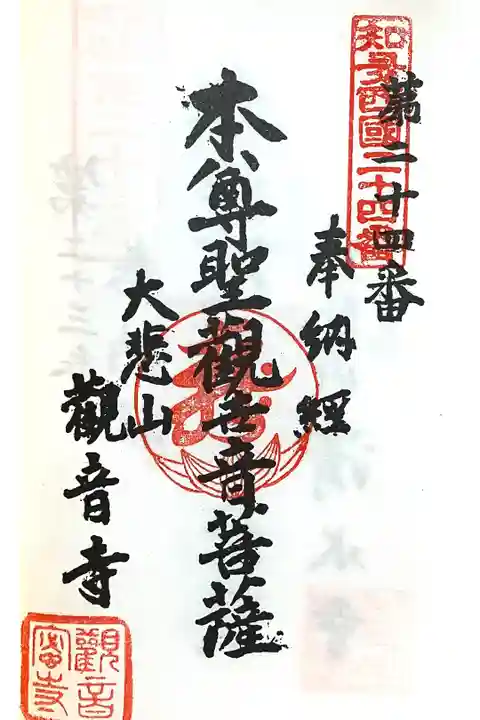 知多西國二十四番
第二十四番
奉納經
本尊聖觀世音菩薩
大悲山
觀音寺
觀音
寺